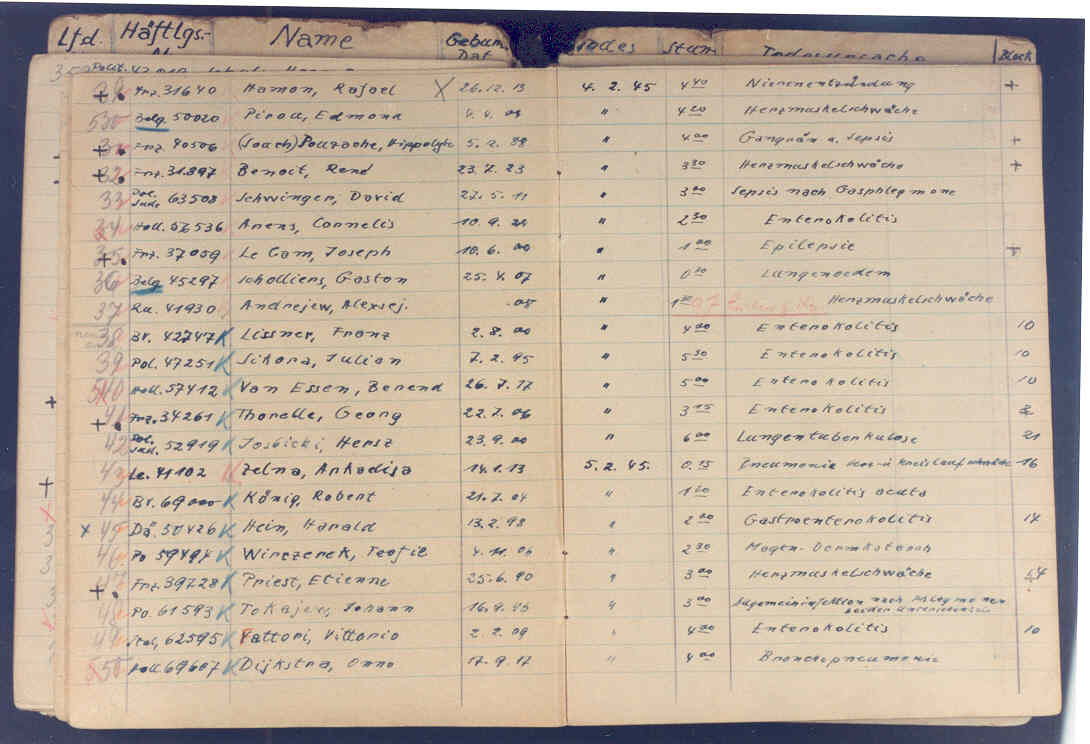 Lfd. Häftlgs.- Name Geburts Dat. Todes Stun Todesursache Block
29. Frz. 31640 Hamon, Rafael X 26.12.13 4.2.45 4 40 Nierenentzündung +
530 Belg. 50020 Pirou, Edmond 4.4.09 " 4 20 Herzmuskelschwäche
Frz. 40506 Hippolyte 5.2.88 " 4 00 Gangrän u. Sepsis +
+ 32. Frz. 31897 Benoit, René 23.7.23 " 3 30 Herzmuskelschwäche +
33 Pol. Jude 63508 Schwinger, David 22.5.11 " 3 00 Sepsis nach Gasphlegmone
34 Holl. 57536 Arens, Cornelis 10.9.24 " 2 30 Enterokolitis
+ 35. Frz. 37059 Le Gam, Joseph 10.6.00 " 1 00 Epilepsie +
36 Belg 45297 Scholliers, Gaston 25.4.07 " 0 30 Lungenoedem
37 Ru. 41930 Andrejew, Alexsej. -05 " Herzmuskelschwäche
38 Br. 42747 K Lissner, Franz 2.8.00 " 4 00 Enterokolitis 10
39 Pol. 47251 K Sikora, Julian 7.2.95 " 5 30 Enterokolitis 10
540 Holl. 57412 K Van Essen, Berend 26.7.17 " 5 00 Enterokolitis 10
+ 41. Frz. 34261 K Thorelle, Georg 22.7.06 " 3 15 Enterokolitis
42 Pol. Jud. 52919 K Josbicki, Hersz 23.9.00 " 6 00 Lungentuberkulose 21
43 Le. 41102 K Zelna, Arkadija 14.1.13 5.2.45. 0.15 Pneumonie Kreislauf 16
44 Br. 69000 K König, Robert 21.7.04 " 1 00 Enterokolitis acuta
x 45 Dä. 50426 K Hein, Harald 13.2.98 " 2 00 Gastroenterokolitis 14
46. Po 59494 K Wirczerek, Teofil 4.11.06 " 2 30 Magen-Darmkatarrh
+ 47. Frz. 39728 K Priest, Etienne 25.6.90 " 3 00 Herzmuskelschwäche
48 Po. 61593 K Tokajew, Johann " 3 00 Allgemeininfektion nach Phlegmonen
beider Unterschenkel
49 Ital. 62595 K Fattori, Vittorio 2.2.09 " 4 00 Enterokolitis 10
550 Holl 69607 K Dijkstra, Onno 17.9.17 " 4 00 Bronchopneumonie